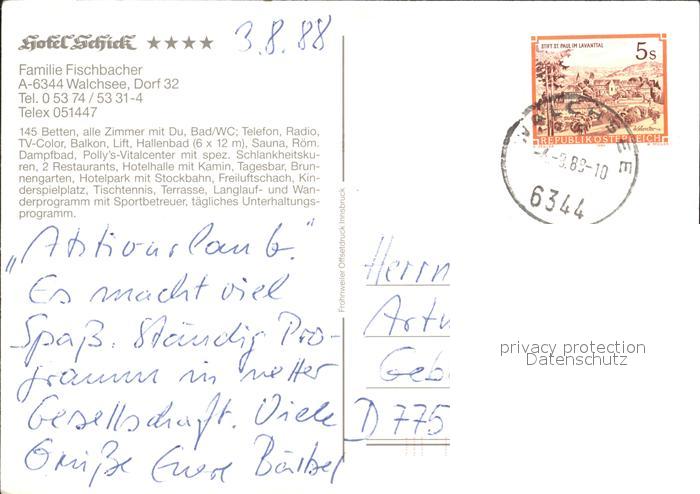 Hotel Schick ★★★★
3.8.88
Familie Fischbacher
A-6344 Walchsee, Dorf 32
Tel. 0 53 74 / 53 31-4
Telex 051447
145 Betten, alle Zimmer mit Du, Bad/WC; Telefon, Radio,
TV-Color, Balkon, Lift, Hallenbad (6 x 12 m), Sauna, Röm.
Dampfbad, Polly's-Vitalcenter mit spez. Schlankheitsku-
ren, 2 Restaurants, Hotelhalle mit Kamin, Tagesbar, Brun-
nengarten, Hotelpark mit Stockbahn, Freiluftschach, Kin-
derspielplatz, Tischtennis, Terrasse, Langlauf- und Wan-
derprogramm mit Sportbetreuer, tägliches Unterhaltungs-
programm.
„Aktivurlaub."
Es macht viel
Spaß. Ständig Pro-
gramm in netter
Gesellschaft. Viele
Grüße Eure Bärbel
Frohnweiler Offsetdruck Innsbruck
STIFT ST. PAUL IM LAVANTTAL
5 S
REPUBLIK ÖSTERREICH
WALCHSEE
6344
Herrn
Artu
Geb
D 775
privacy protection
Datenschutz